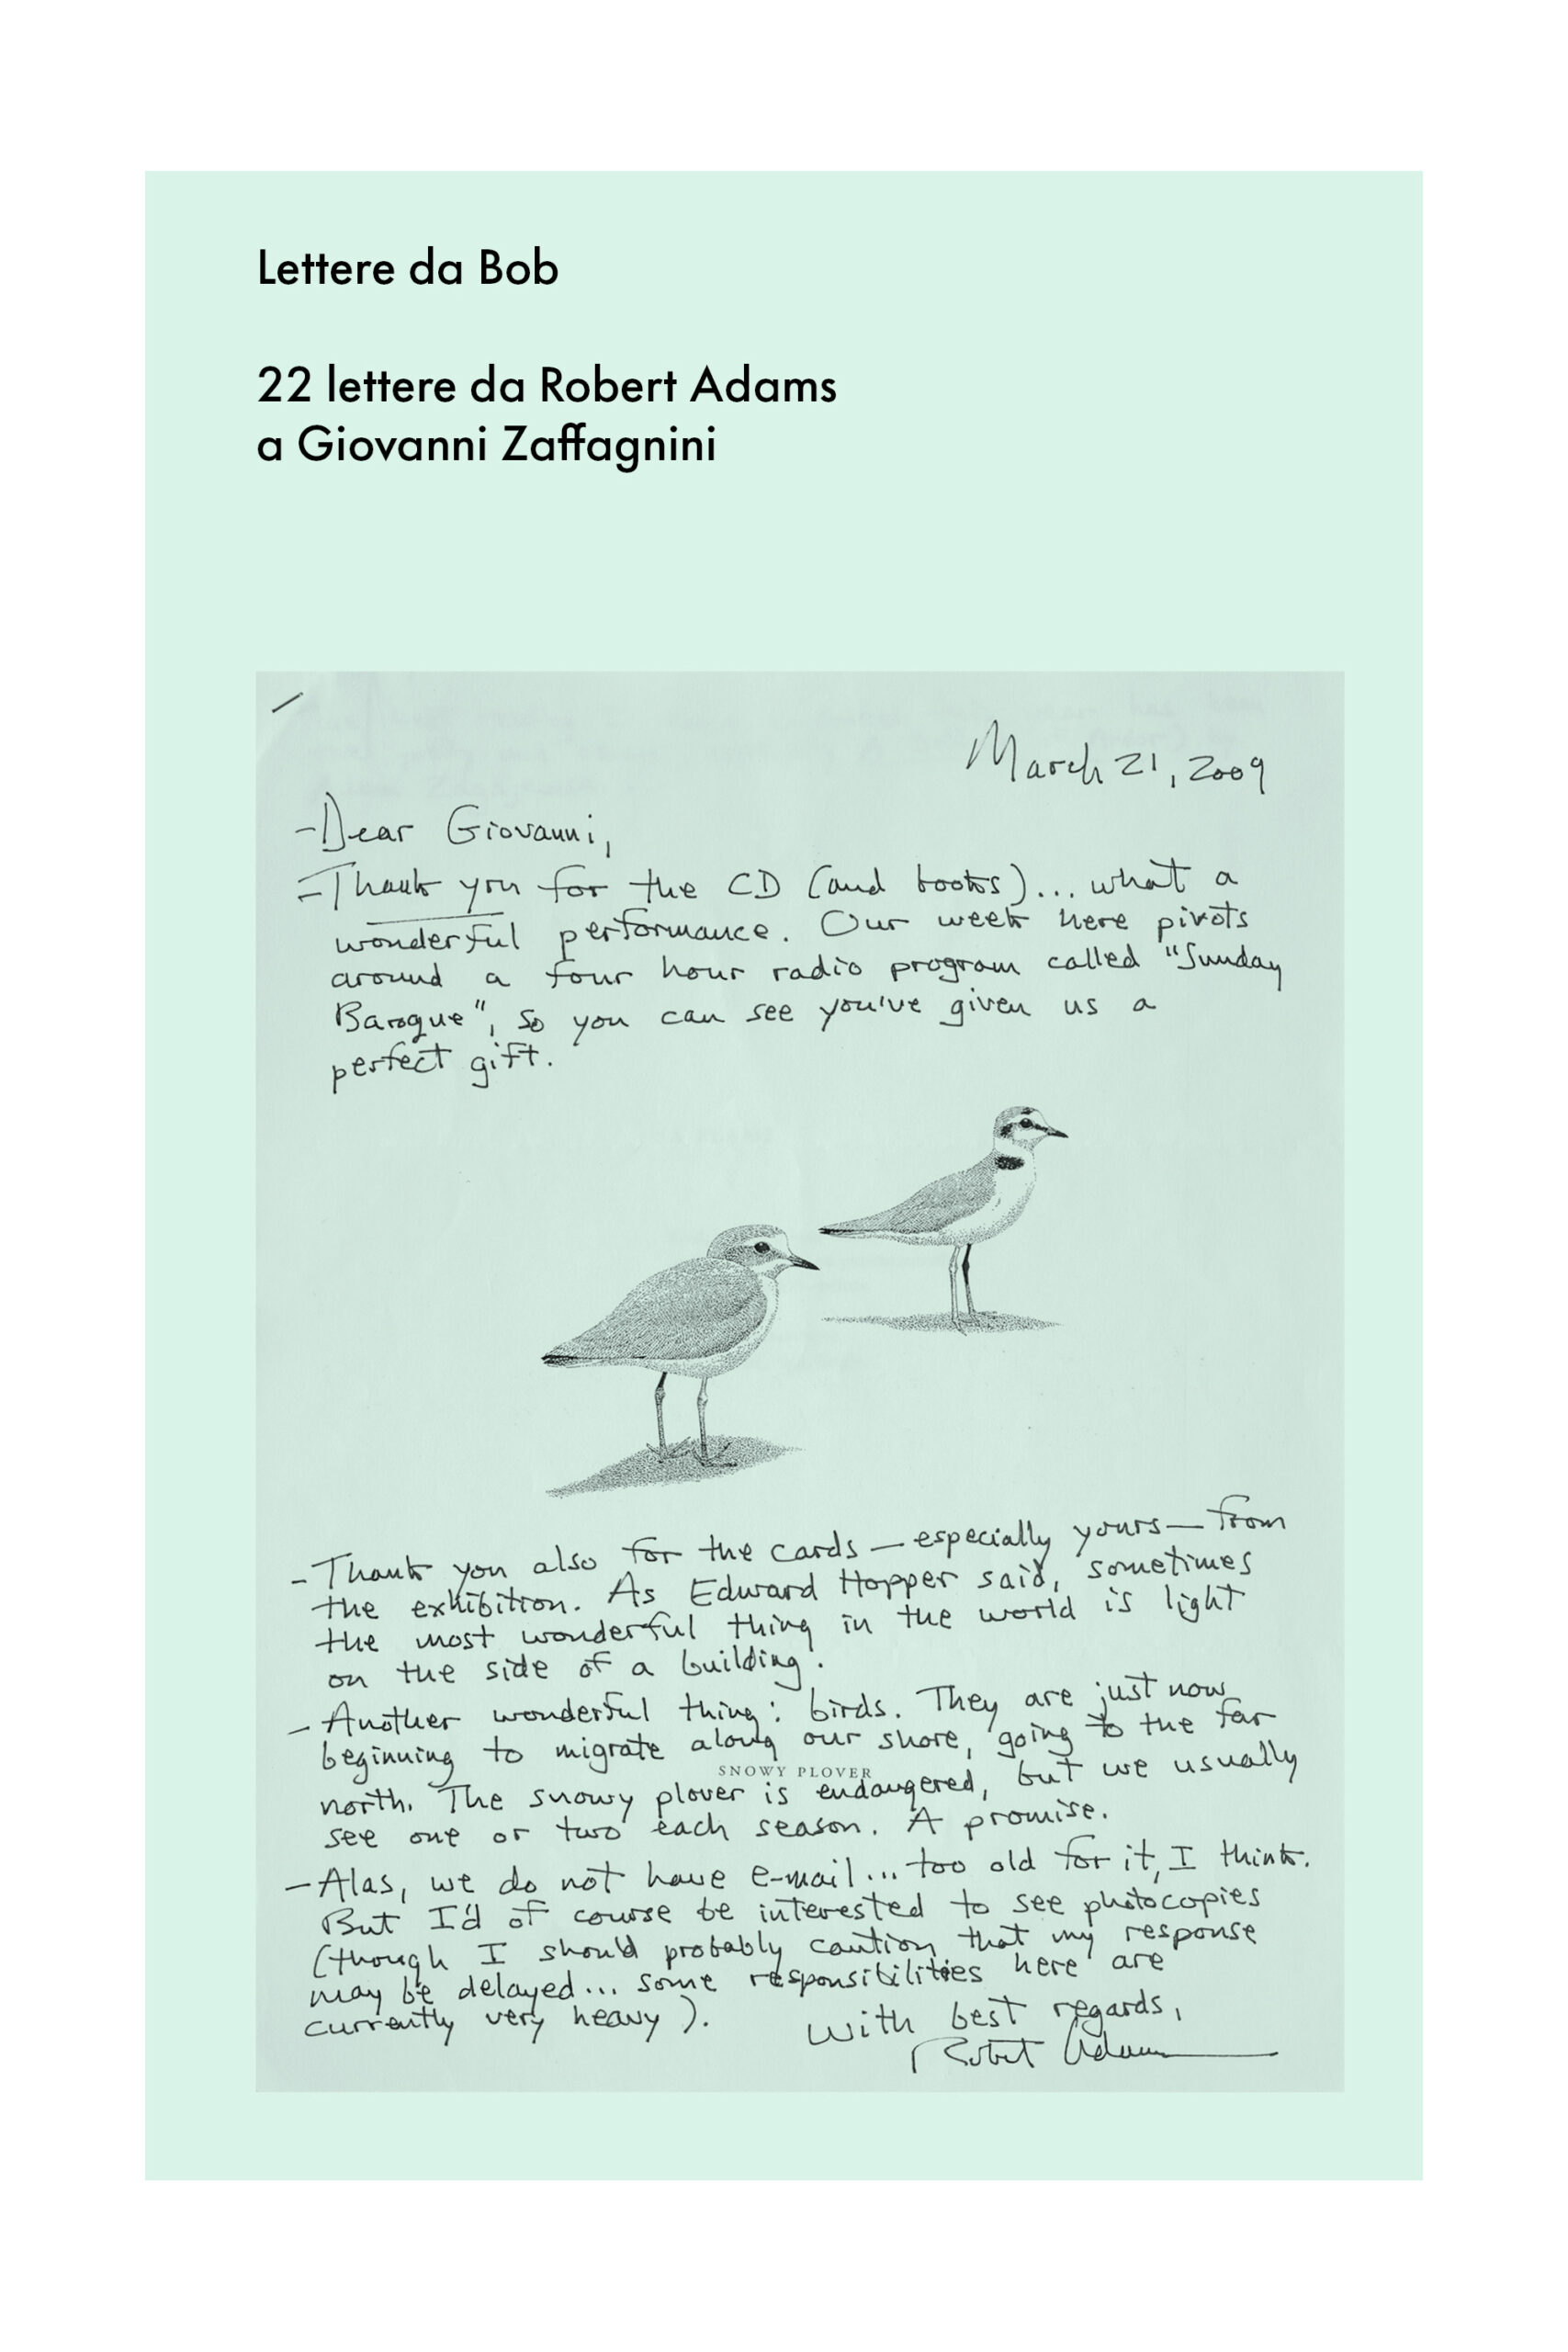 Lettere da Bob
22 lettere da Robert Adams
a Giovanni Zaffagnini
March 21, 2009
-Dear Giovanni,
-Thank you for the CD (and books)... what a
wonderful performance. Our week here pivots
around a four hour radio program called "Sunday
Baroque", so you can see you've given us a
perfect gift.
-Thank you also for the cards — especially yours — from
the exhibition. As Edward Hopper said, sometimes
the most wonderful thing in the world is light
on the side of a building.
-Another wonderful thing: birds. They are just now
beginning to migrate along our shore, going to the far
SNOWY PLOVER
north. The snowy plover is endangered, but we usually
see one or two each season. A promise.
-Alas, we do not have e-mail... too old for it, I think.
But I'd of course be interested to see photocopies
(though I should probably caution that my response
may be delayed... some responsibilities here are
currently very heavy).
With best regards,
Robert Adams